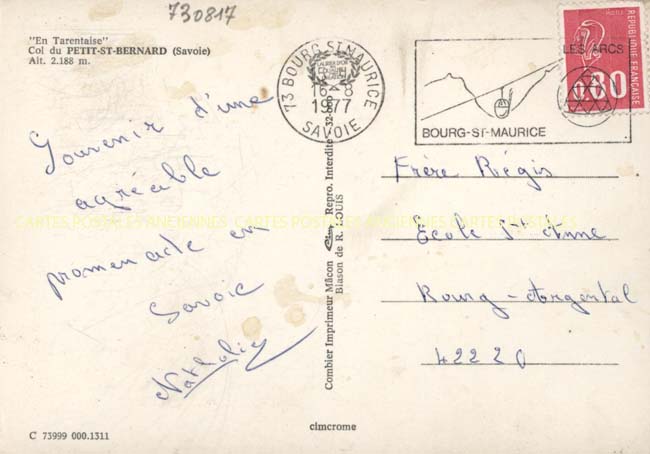 730817
"En Tarentaise"
Col du PETIT-ST-BERNARD (Savoie)
Alt. 2.188 m.
73 BOURG ST MAURICE
16-8
1977
SAVOIE
LES ARCS
BOURG-ST-MAURICE
REPUBLIQUE FRANCAISE
0,80
Souvenir d'une
agréable
promenade en
Savoie
Nathalie
Combier Imprimeur Mâcon Cim Repro. Interdite
Blason de R. LOUIS
Frère Régis
Ecole Ste Anne
Bourg-Argental
42220
CARTES POSTALES ANCIENNES CARTES POSTALES ANCIENNES CARTES POSTALES ANCIENNES
C 73999 000.1311
cimcrome